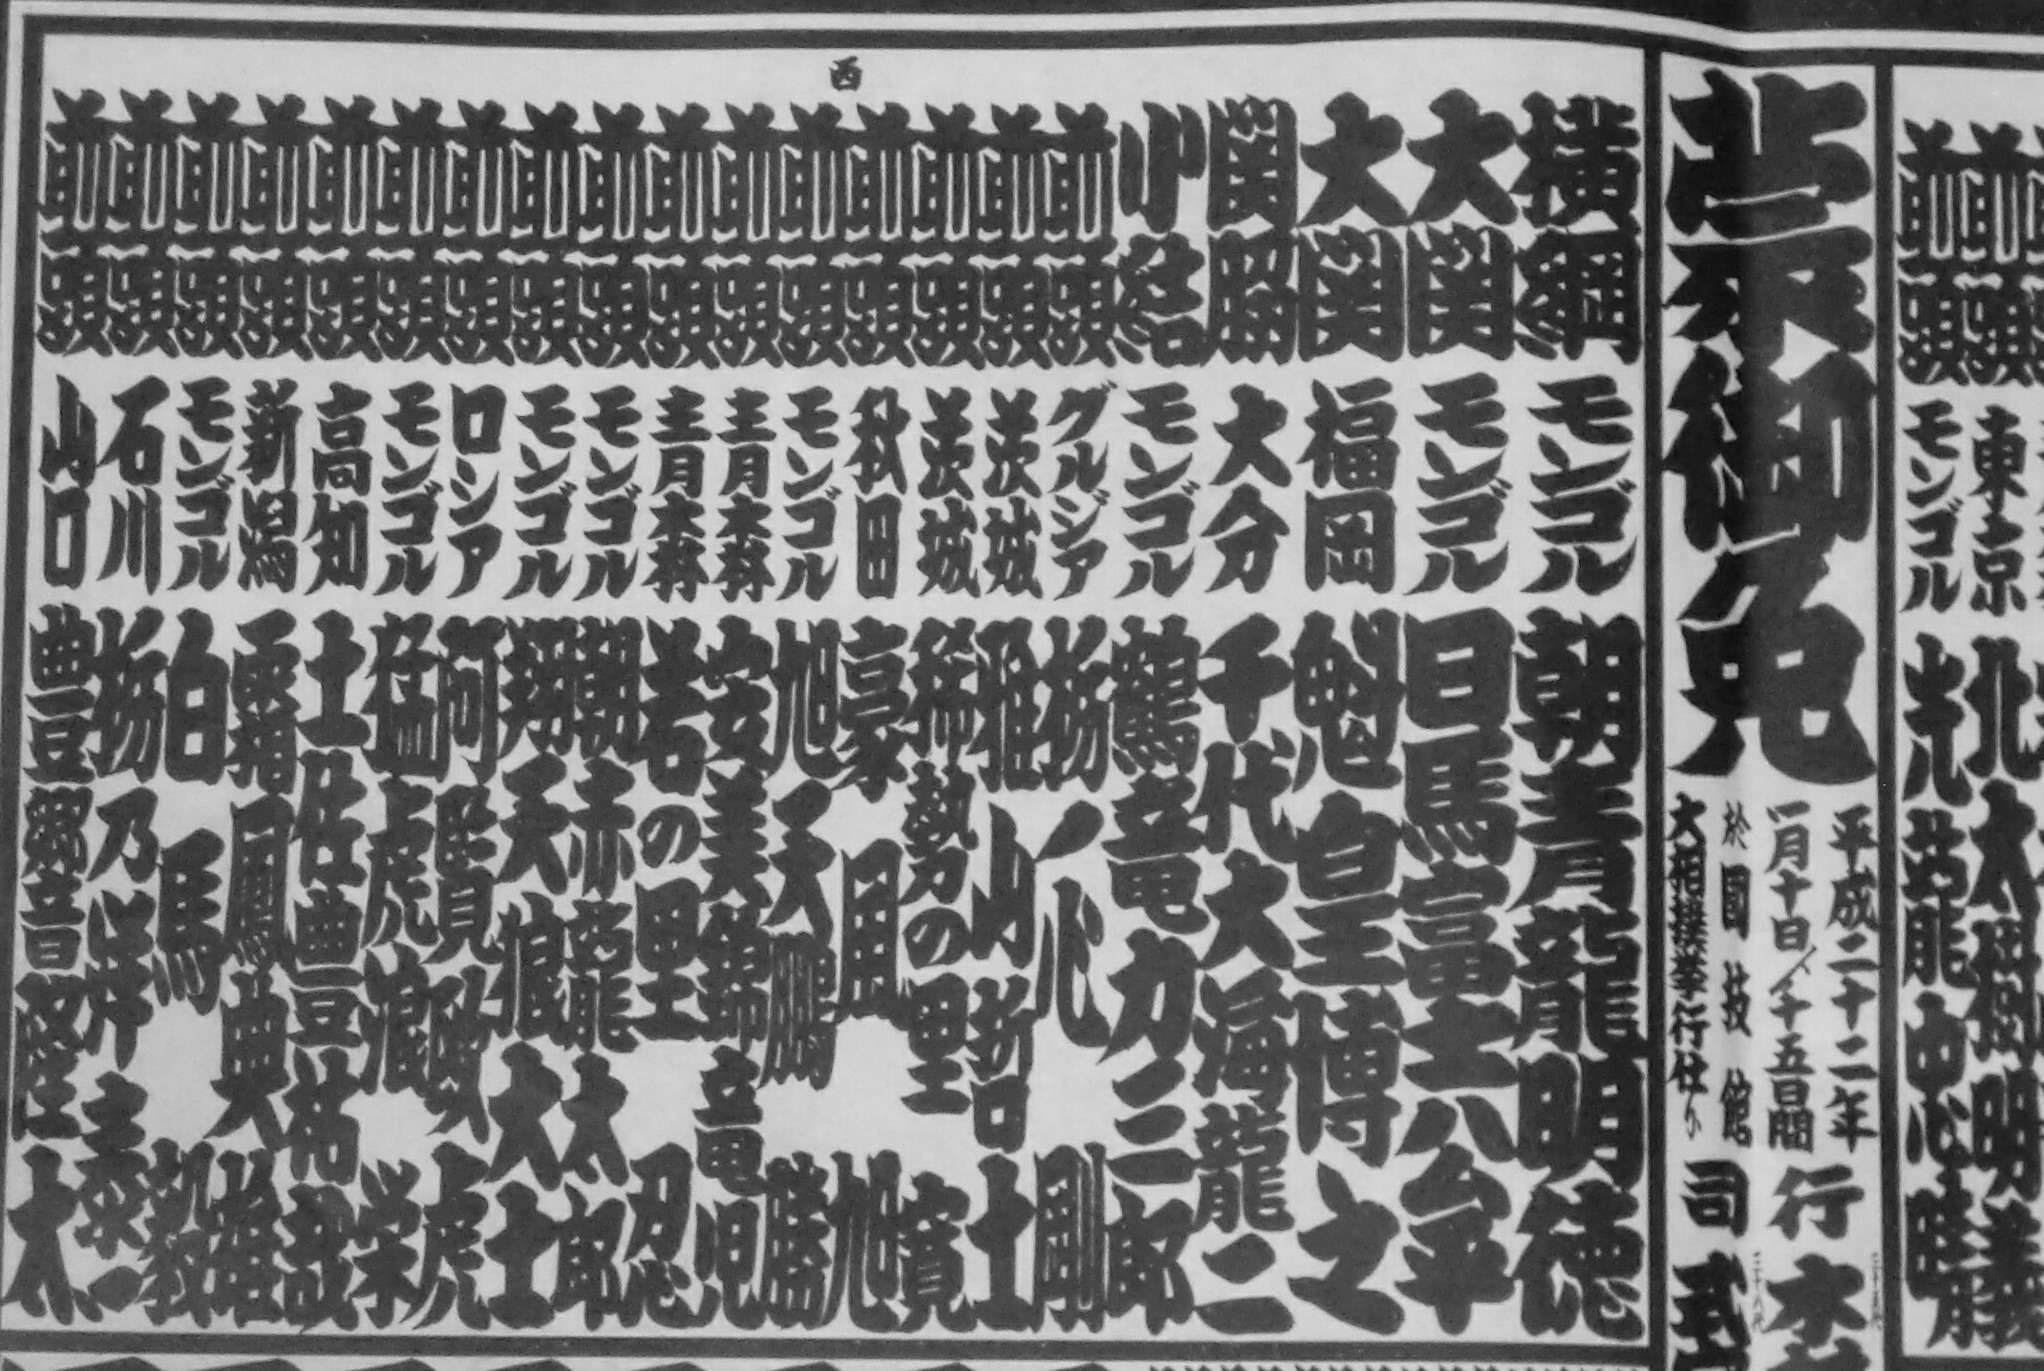 前頭 東京 北太樹明義
前頭 モンゴル 光龍忠晴
蒙御免
平成二十二年
一月十日ヨリ十五日間
於國技館
大相撲挙行仕候
行司
木
式
西
横綱 モンゴル 朝青龍明徳
大関 モンゴル 日馬富士公平
大関 福岡 魁皇博之
関脇 大分 千代大海龍二
小結 モンゴル 鶴竜力三郎
前頭 グルジア 栃ノ心剛
前頭 茨城 雅山哲士
前頭 茨城 稀勢の里寛
前頭 秋田 豪風旭
前頭 モンゴル 旭天鵬勝
前頭 青森 安美錦竜児
前頭 青森 若の里忍
前頭 モンゴル 朝赤龍太郎
前頭 モンゴル 翔天狼大士
前頭 ロシア 阿覧欧虎
前頭 モンゴル 猛虎浪栄
前頭 高知 土佐豊祐哉
前頭 新潟 霜鳳典雄
前頭 モンゴル 白馬毅
前頭 石川 栃乃洋泰一
前頭 山口 豊響隆太